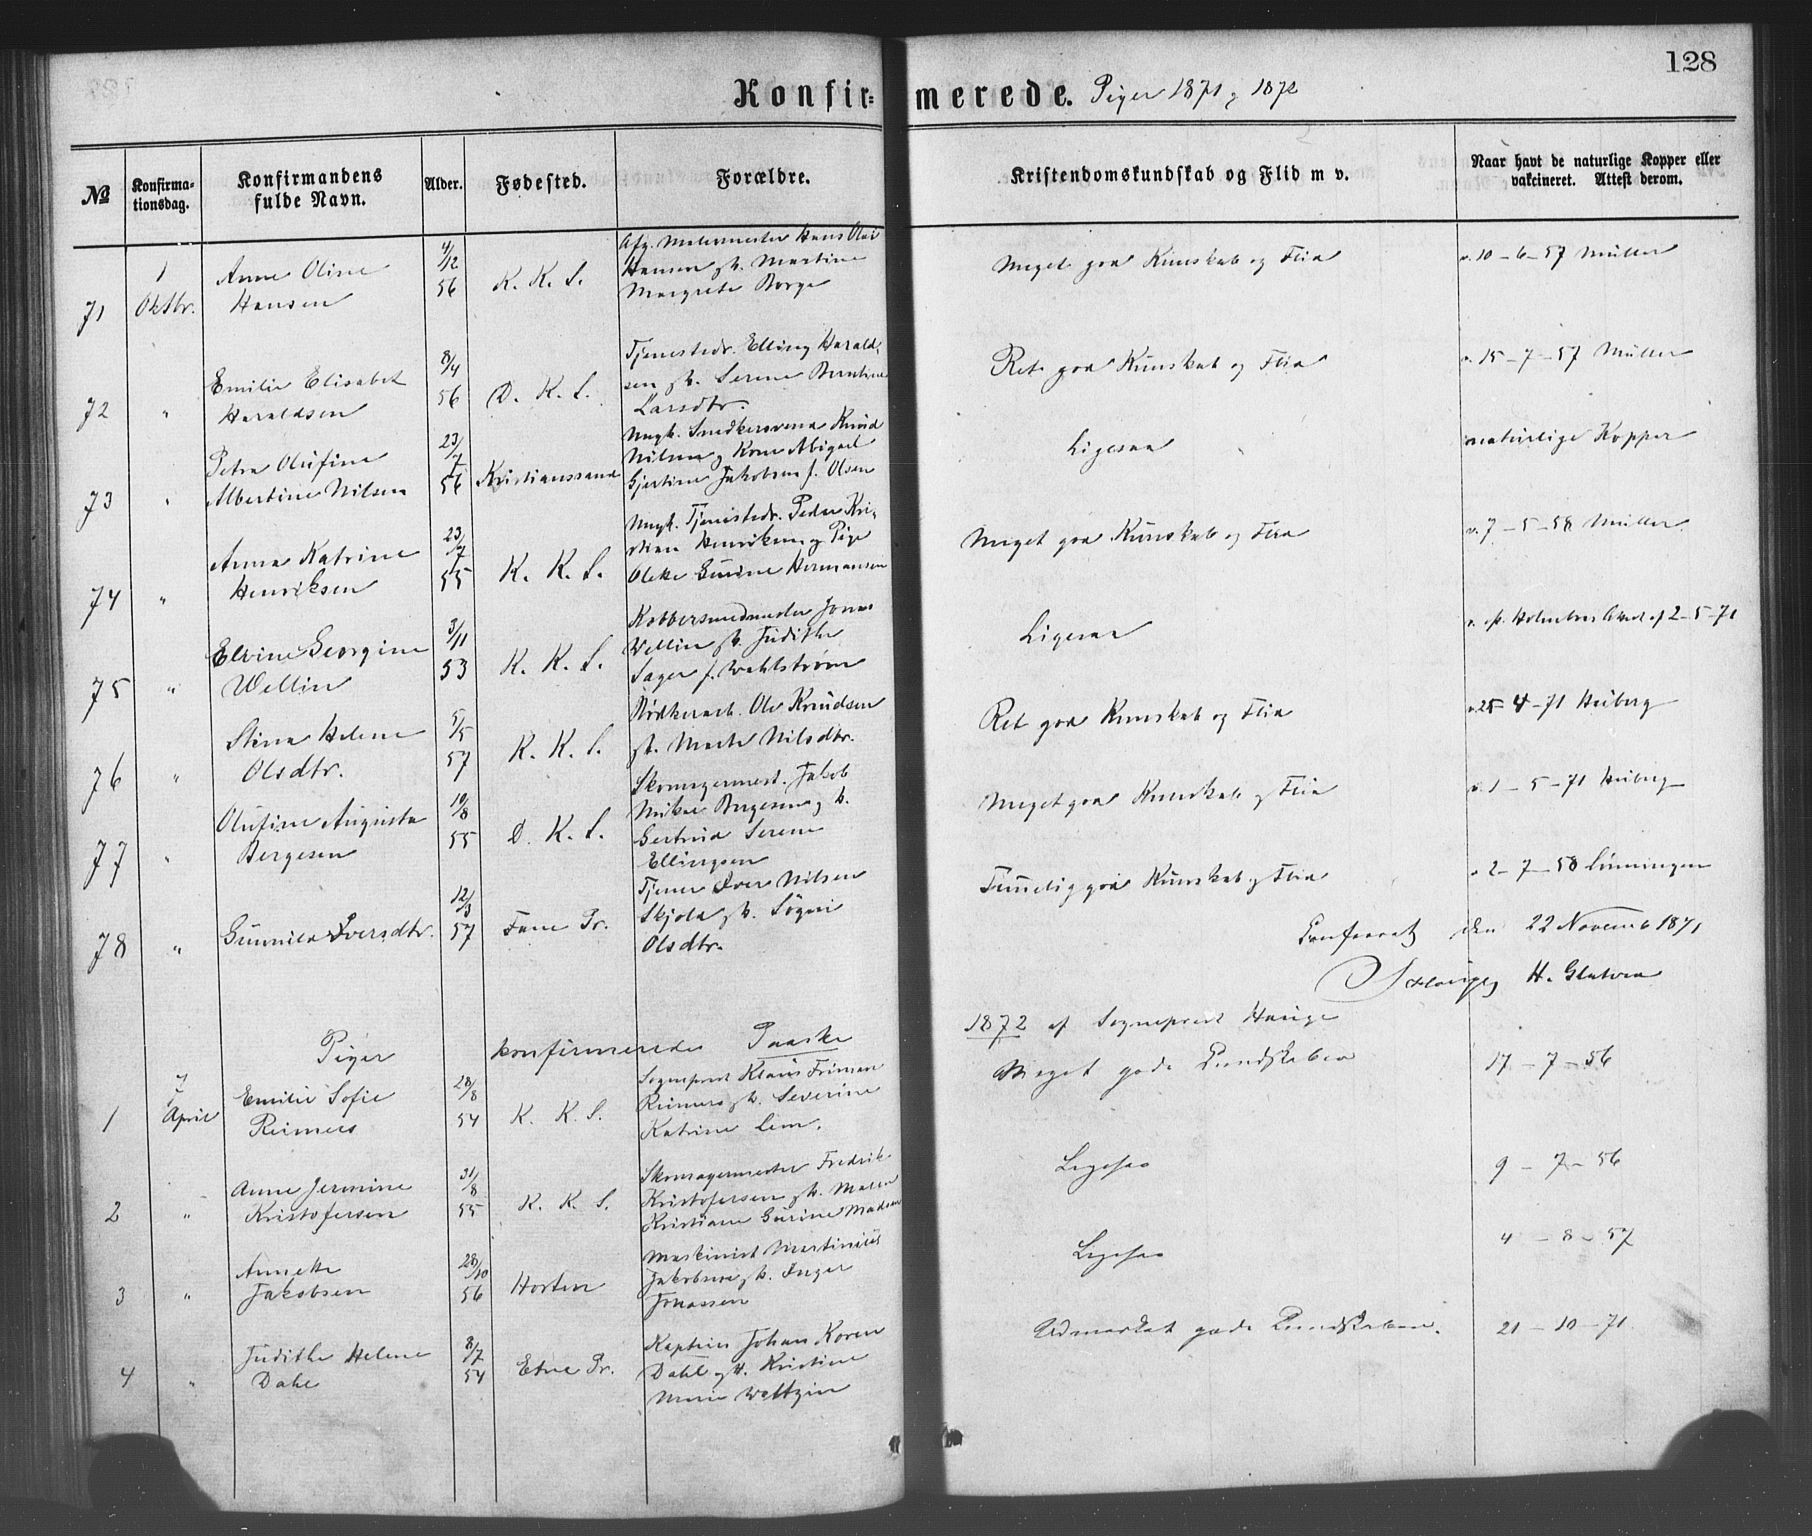 128
Konfir- merede. Piger 1871 og 1872
№
Konfirma-
tionsdag.
Konfirmandens
fulde Navn.
Alder.
Fødested.
Forældre.
Kristendomskundskab og Flid m v.
Naar havt de naturlige Kopper eller
vakcineret. Attest derom.
71
1
Oktbr.
Anne Oline
Hansen
4/12
56
K. K. S.
Afg. Malermester Hans Olai
Hansen og h. Martine
Margrete Borge
Meget god Kunskab og Flid
v. 10-6-57 Müller
72
"
Emilie Elisabet
Haraldsen
8/4
56
D. K. S.
Tjenestedr. Elling Harald-
sen og h. Serene Berntine
Larsdtr.
Ret god Kunskab og Flid
v. 15-7-57 Müller
73
"
Petra Olufine
Albertine Nilsen
23/7
56
Kristianssand
Ungk. Snedkersvend Knud
Nilsen og Kone Abigael
Gjertine Jakobsen f. Olsen
Ligesaa
naturlige Kopper
74
"
Anna Katrine
Henriksen
23/7
55
K. K. S.
Ungk. Tjenestedr. Peder Kri-
stian Henriksen og Pige
Oleke Gurine Hermansen
Meget god Kunskab og Flid
v. 7-5-58 Müller
75
"
Elvine Georgine
Wellin
3/11
53
K. K. S.
Kobbersmedmester Jonas
Wellin og h. Judithe
Sager f. Wahlström
Ligesaa
2-5-71
76
"
Stina Helene
Olsdtr.
5/5
57
K. K. S.
Bødkerarb. Ole Knudsen
og h. Marte Nilsdtr.
Ret god Kunskab og Flid
v. 25-4-71 Heiberg
77
"
Olufine Augusta
Bergesen
10/8
55
D. K. S.
Skomagermest. Jakob
Mikal Bergesen og h.
Gertrud Serene
Ellingsen
Meget god Kunskab og Flid
v. 1-5-71 Heiberg
78
"
Gunnild Iversdtr.
12/3
57
Fane Pr.
Tjener Iver Nilsen
Skjold og h. Sygni
Olsdtr.
Temmelig god Kunskab og Flid
v 2-7-58 Linningen
Confereret den 22 Novemb 1871
H. Glatved
Piger konfirmerede Paaske 1872 af Sogneprest Hauge
1
7
April
Emilie Sofie
Reimers
28/8
54
K. K. S.
Sogneprest Klaus Frimann
Reimers og h. Severine
Katrine Lem.
Meget gode Kundskaber
17-7-56
2
"
Anne Jermine
Kristofersen
31/8
55
K. K. S.
Skomagermester Fredrik
Kristofersen og h. Maren
Kristiane Gurine Madsen
Ligesaa
9-7-56
3
"
Annette
Jakobsen
28/10
56
Horten
Maskinist Martinius
Jakobsen og h. Inger
Jonassen
Ligesaa
4-8-57
4
"
Judithe Helene
Dahl
8/7
54
Etne Pr.
Kaptein Johan Koren
Dahl og H. Kristine
Marie Weltzin
Udmærket gode Kundskaber.
21-10-71.